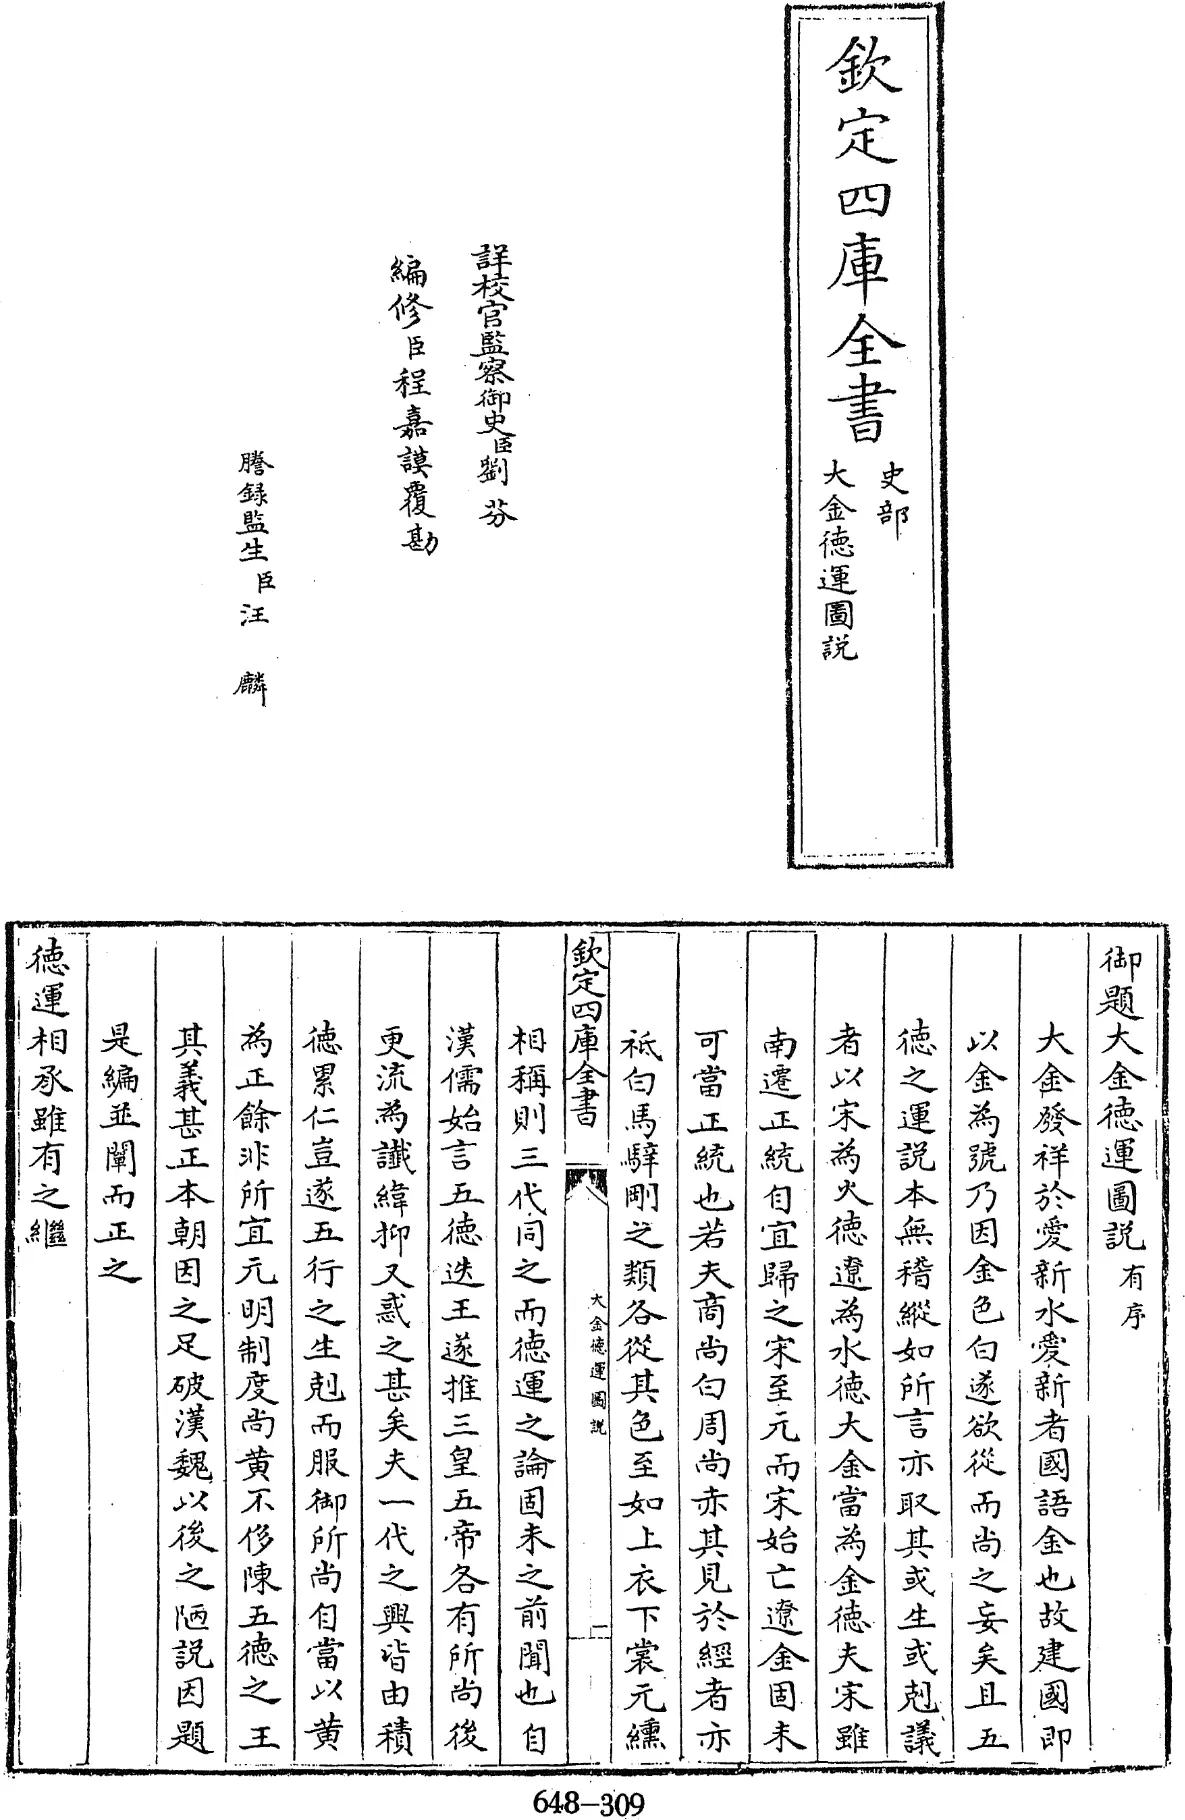 欽定四庫全書
史部
大金德運圖説
詳校官監察御史臣劉芬
編修臣程嘉謨覆勘
謄錄監生臣汪麟
御題大金德運圖説有序
大金發祥於愛新水愛新者國語金也故建國即
以金為號乃因金色白遂欲從而尚之妄矣且五
德之運説本無稽縱如所言亦取其或生或剋議
者以宋為火德遼為水德大金當為金德夫宋雖
南遷正統自宜歸之宋至元而宋始亡遼金固未
可當正統也若夫商尚白周尚赤其見於經者亦
祗白馬騂剛之類各從其色至如上衣下裳元纁
欽定四庫全書
大金德運圖説
一
相稱則三代同之而德運之論固未之前聞也自
漢儒始言五德迭王遂推三皇五帝各有所尚後
更流為讖緯抑又惑之甚矣夫一代之興皆由積
德累仁豈遂五行之生剋而服御所尚自當以黄
為正餘非所宜元明制度尚黄不侈陳五德之王
其義甚正本朝因之足破漢魏以後之陋説因題
是編並闡而正之
德運相承雖有之繼
648-309